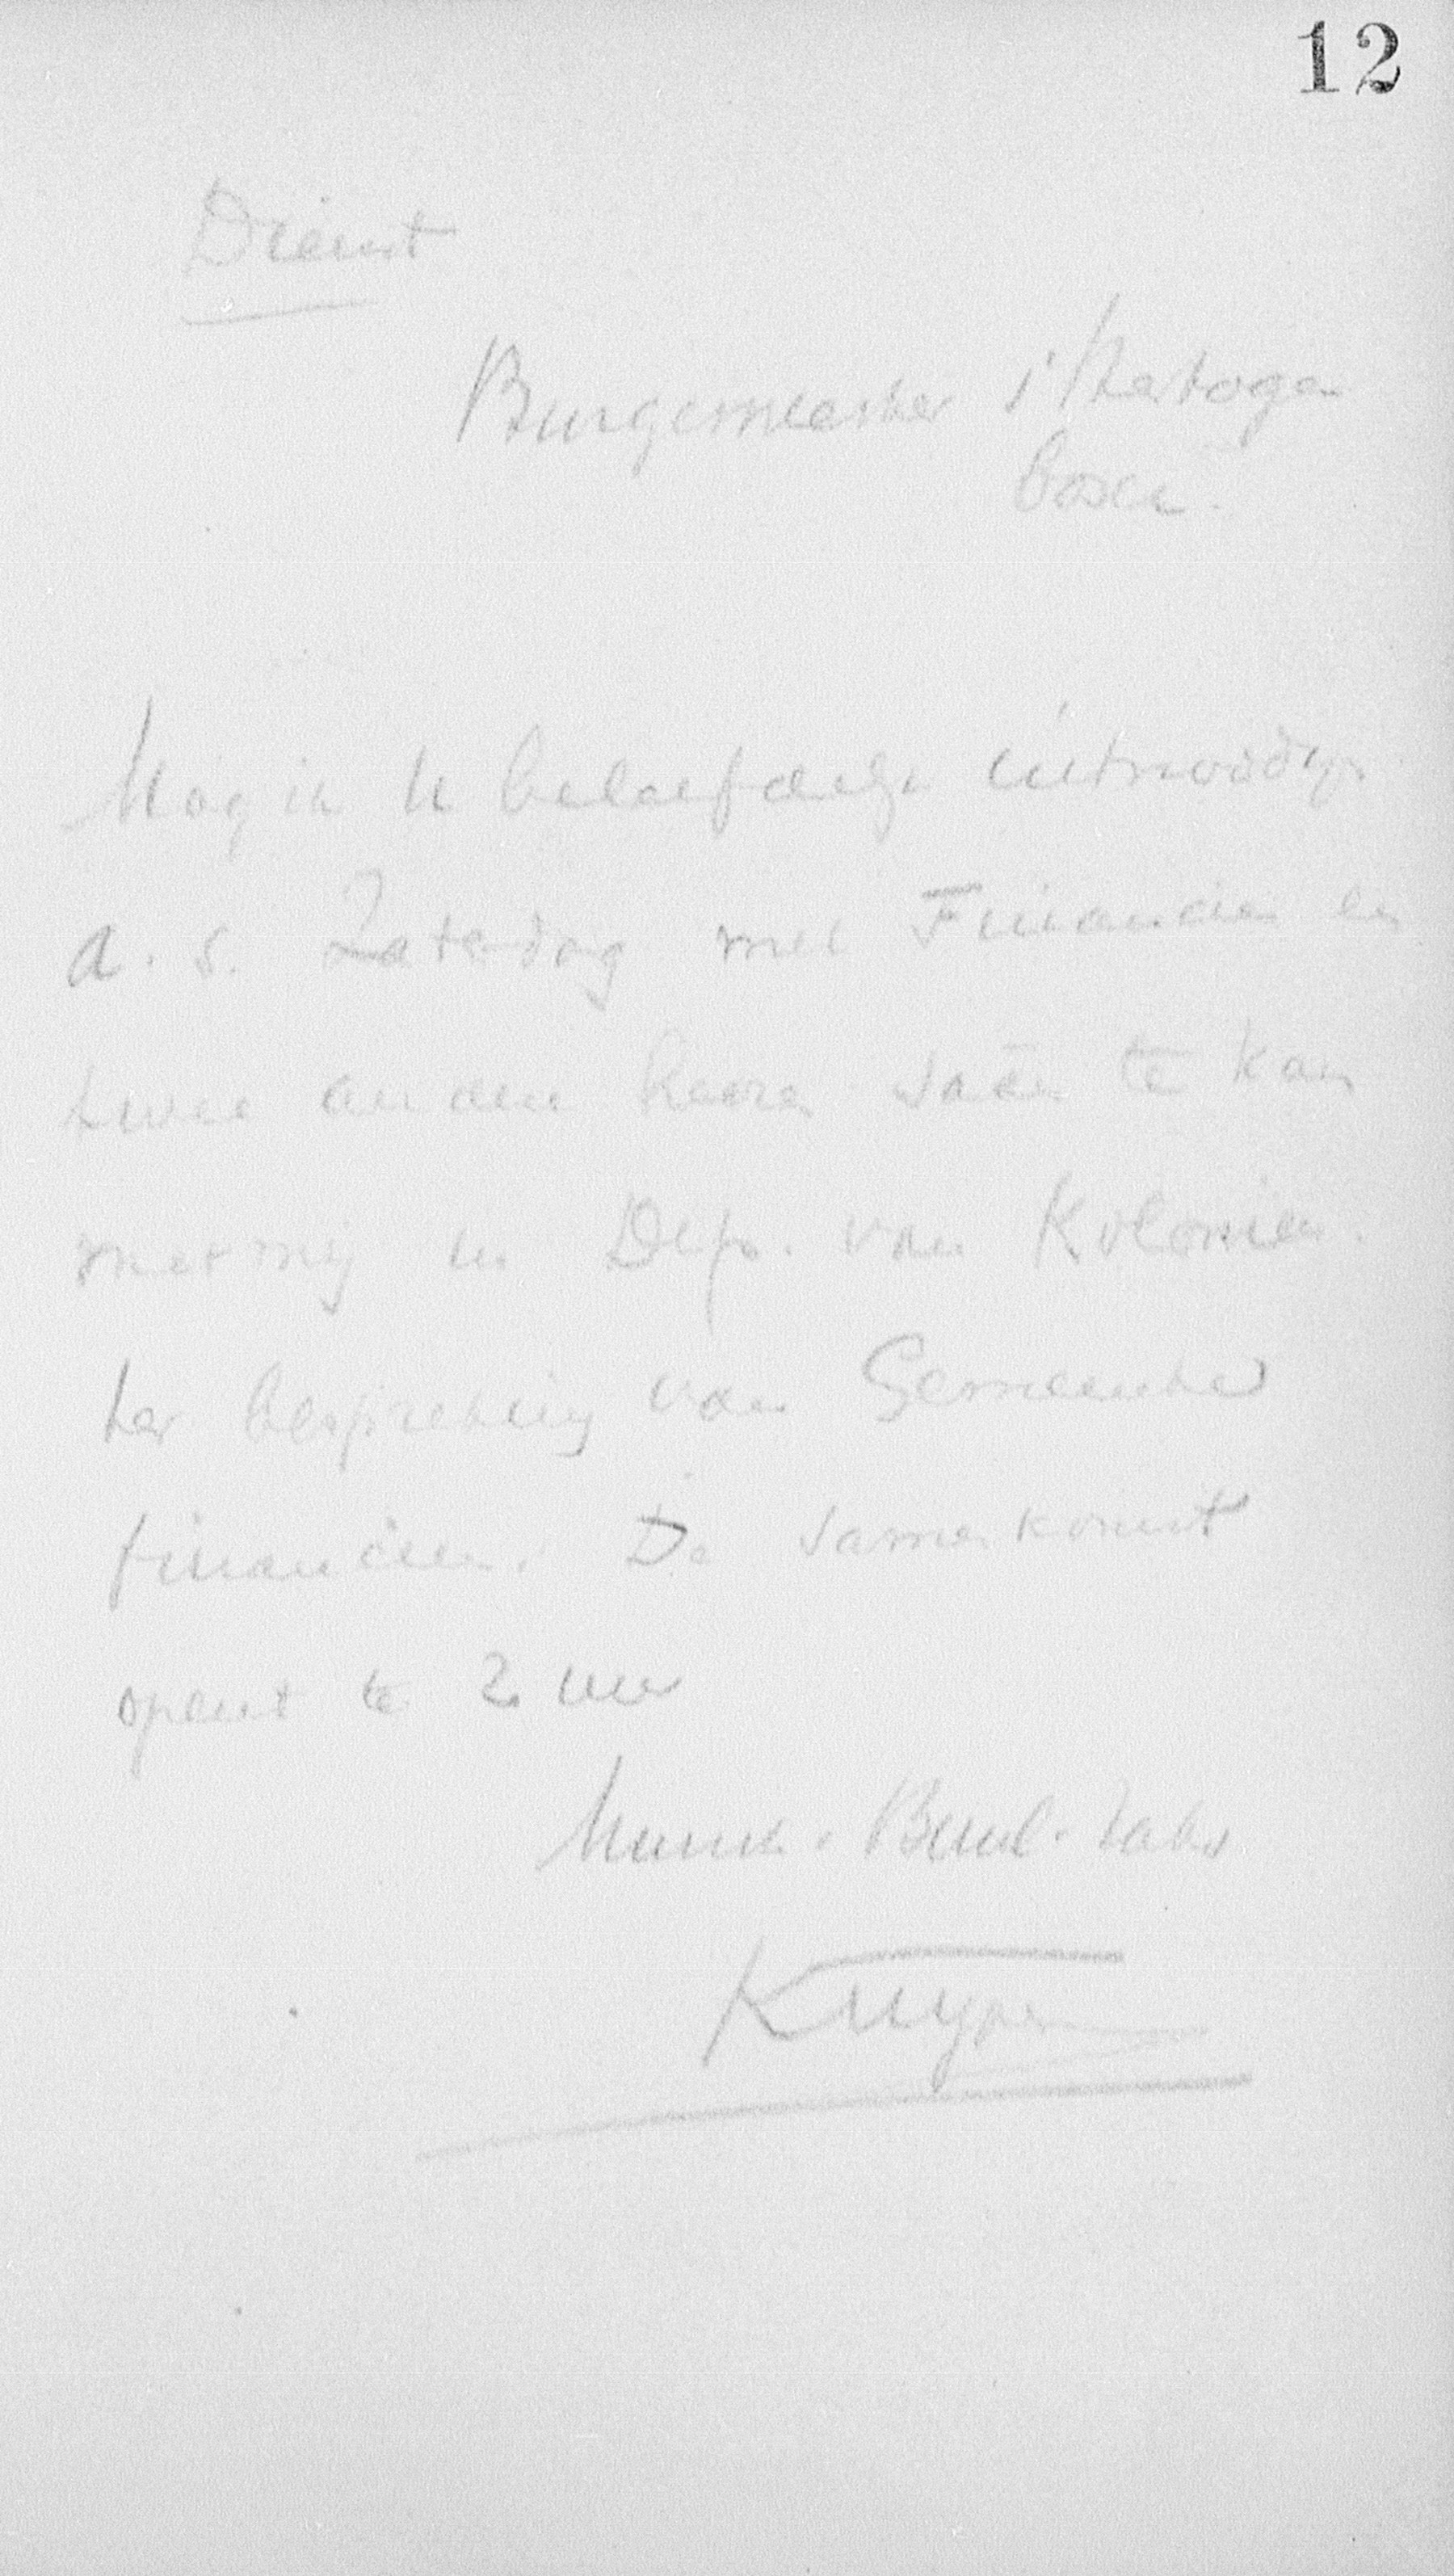 12
Dienst
Burgemeester 's Hertogen
bosch.
Mag ik U beleefdelijk uitnoodigen
a. s. Zaterdag met Financien en
twee andere heeren saam te kom
met mij in Dep. van Kolonien.
ter bespreking van Gemeente
financien. De samenkomst
opent te 2 uur
Minist. Binnl. Zaken
Kuyper